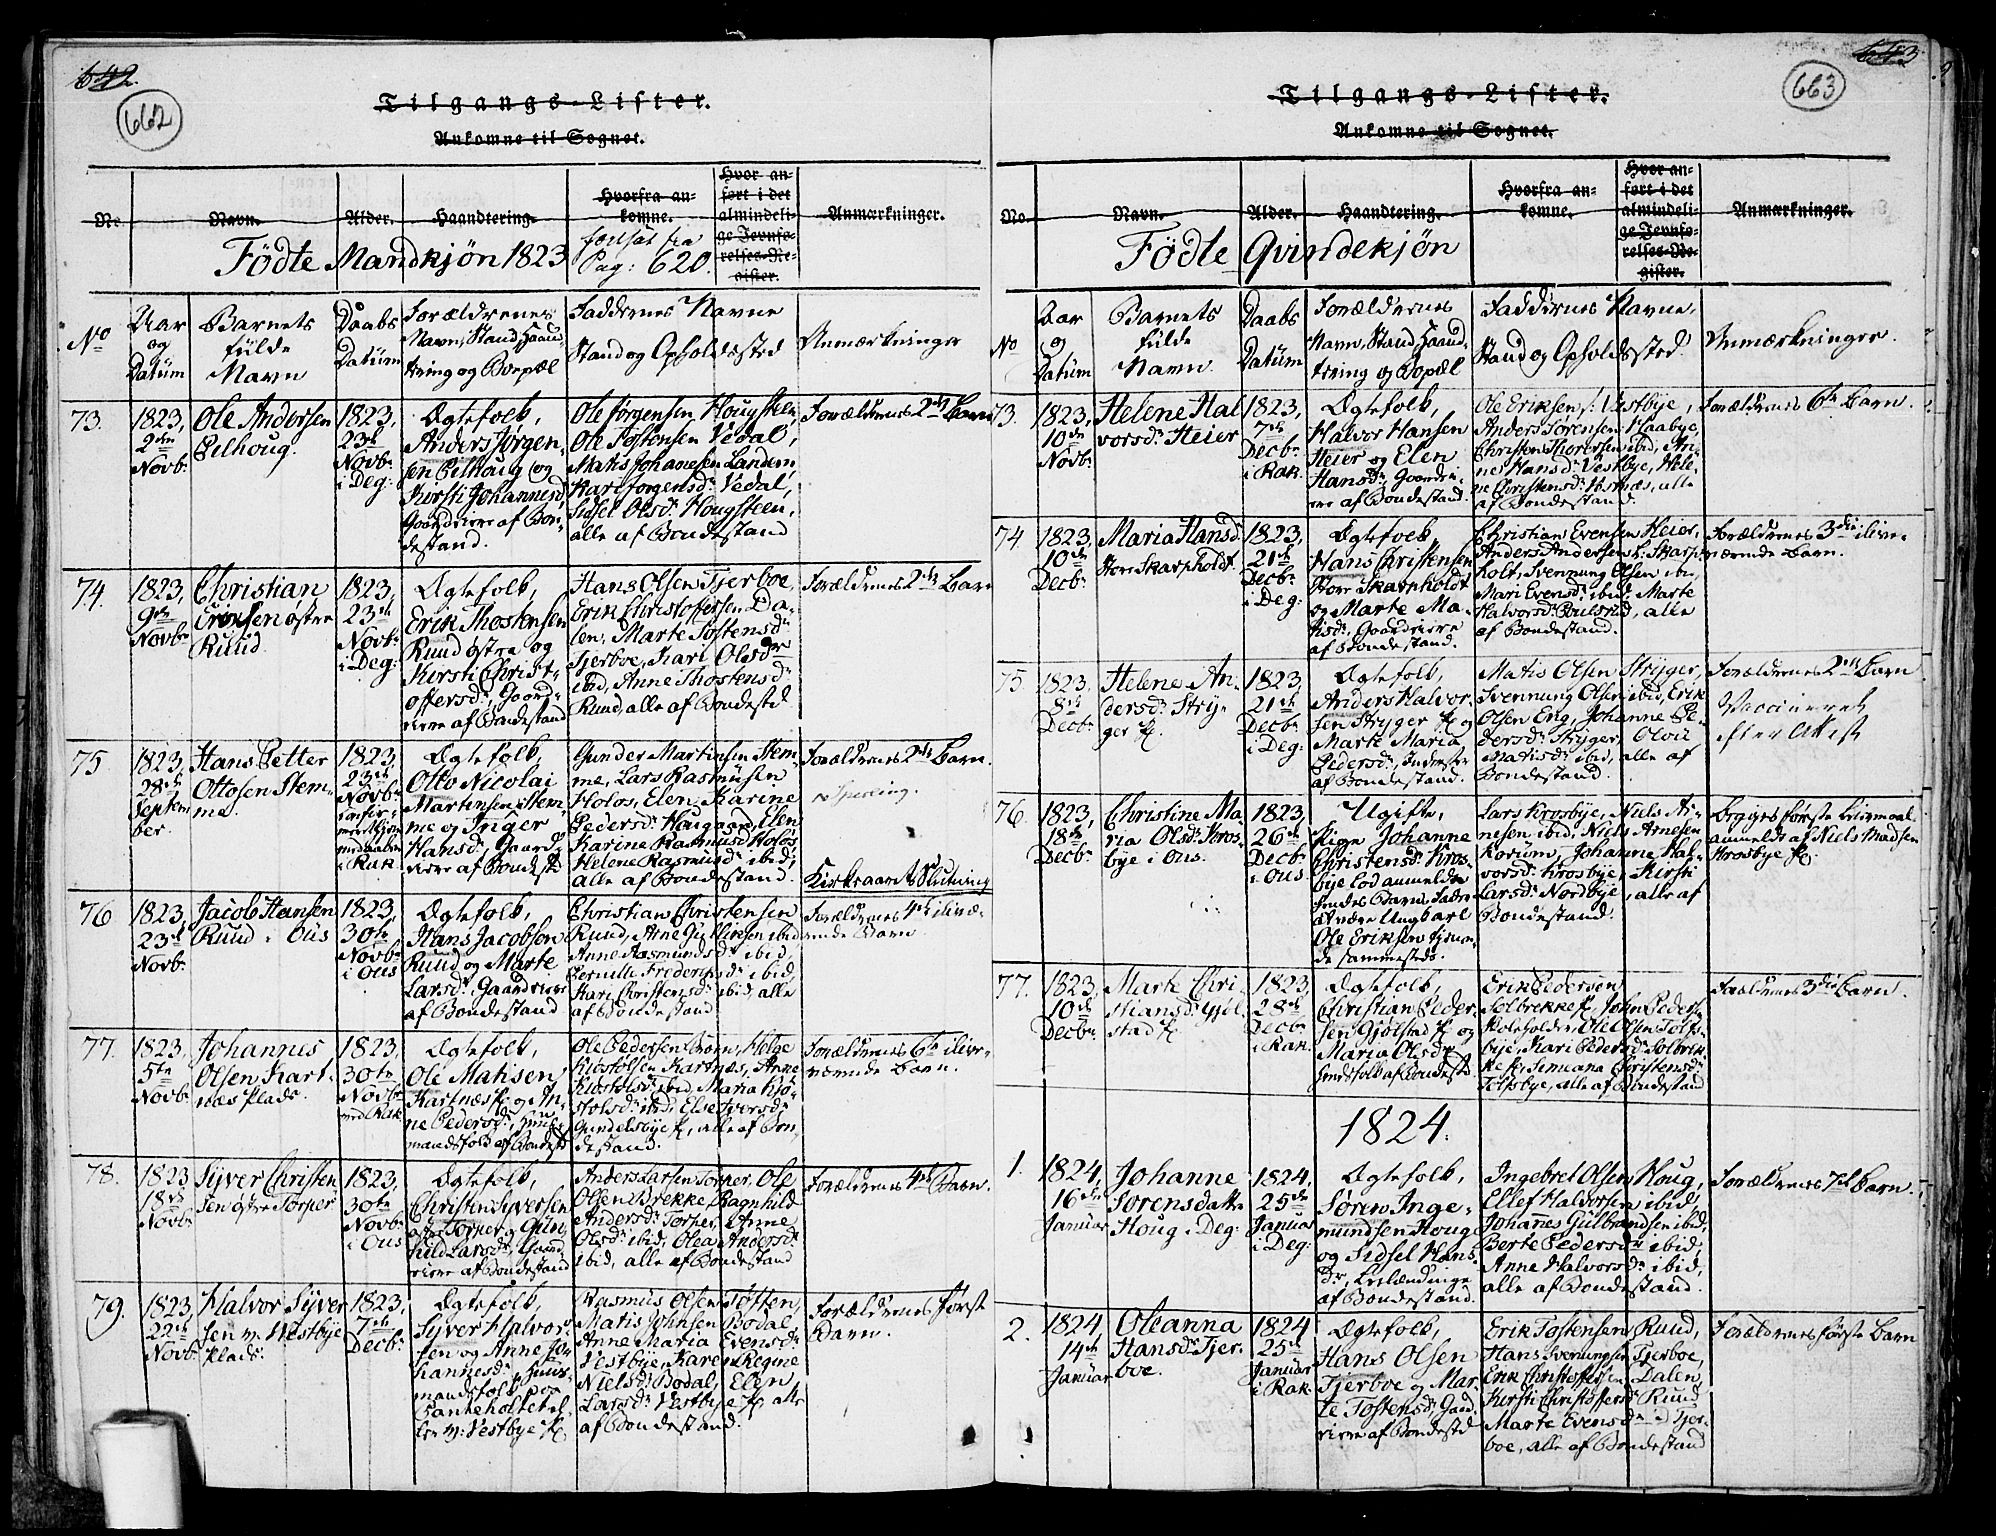 642.
662
Tilgangs-Lister.
Ankomne til Sognet.
No
Navn.
Alder.
Haandtering.
Hvorfra an-
komne.
Hvor an-
ført i det
almindeli-
ge Jevnfø-
relses-Re-
gister.
Anmærkninger.
Födte Mandkjön 1823
fortsat fra
Pag: 620.
No
Aar
og
Datum
Barnets
fulde
Navn
Daabs
Datum
Forældrenes
Navn, Stand, Haand-
tering og Bopæl
Faddernes Navne
Stand og Opholdssted
Anmærkninger
73.
1823,
2den
Novbr
Ole Andersen
Pilhoug.
1823,
23de
Novbr
i Deg:
Ægtefolk,
Anders Jørgen-
sen Pilhoug og
Kirsti Johannesd.
Gaardeiere af Bon-
destand.
Ole Jørgensen Hougsteen,
Ole Tostensen Vedal,
Matis Johanesen Landem,
Kari Jorgensdr Vedal,
Sidsel Olsdr Hougsteen,
alle af Bondestand
Forældrenes 2det Barn
74.
1823,
9de
Novbr
Christian
Eriksen østre
Ruud
1823,
23de
Novbr
i Deg:
Ægtefolk,
Erik Thostensen
Ruud østre og
Kirsti Christ-
offersdr, Gaard-
eiere af Bondestand
Hans Olsen Tjerboe
Erik Christoffersen Da-
len, Marte Tostensdr
Tjerboe, Kari Olsdr
ibid, Anne Thostensdr
Ruud, alle af Bondestd
Forældrenes 2det Barn
75
1823,
28de
Septem-
ber.
Hans Petter
Ottosen Stem-
me.
1823,
23de
Novbr
i Rak
Ægtefolk,
Otto Nicolai
Martinsen Stem-
me og Inger
Hansdr, Gaard-
eiere af Bondestd
Gunder Martinsen Stem-
me, Lars Rasmusen
Holøs, Elen Karine
Pedersdr Haugaard, Elen
Karine Rasmusd Holøs
Helene Rasmusdr ibid,
alle af Bondestand.
Forældrenes 2det Barn.
Sperling.
Kirkeaarets Slutning
76
1823,
23de
Novbr
Jacob Hansen
Ruud i Ous
1823,
30te
Novbr
i Ous
Ægtefolk,
Hans Jacobsen
Ruud og Marte
Larsdr, Gaardeiere
af Bondestand
Christian Christensen
Ruud, Arne Gulliksen ibid
Anne Rasmusdr ibid,
Pernille Frederiksdr ibid,
Kari Christensdr ibid, alle
af Bondestand
Forældrenes 4de ilive-
rende Barn.
77.
1823,
5te
Novbr
Johannes
Olsen Kart-
næs Plads.
1823,
30te
Novbr
ved Rak
Ægtefolk,
Ole Matisen
Kartnæs Pl. og An-
ne Pedersdr, Huus-
mandsfolk af Bondestd
Ole Pedersen Biørn, Helge
Kiostolsen Kartnæs, Anne
Kiostolsdr ibid, Maria Kiø-
stolsdr ibid, Else Iversdr
Gundelsbye Pl, alle af Bon-
destand.
Forældrenes 6te ilive-
værende Barn.
78.
1823
18de
Novbr
Syver Christen
sen østre Torper
1823,
30te
Novbr
i Ous
Ægtefolk,
Christen Syversen
østre Torper og Gun-
hild Larsdr, Gaard-
eiere af Bondestand
Anders Larsen Torper, Ole
Olsen Brekke, Ragnhild
Andersdr Torper, Anne
Olsdr ibid, Olea Andersdr
ibid, alle af Bondestand
Forældrenes 4de Barn.
79.
1823,
22de
Novbr
Halvor Syver
sen m: Vestbye
Plads.
1823,
7de
Decbr
Ægtefolk,
Syver Halvor-
sen og Anne Jo-
hannesdr, Huus-
mandsfolk paa
m: Vestbye Pl.
Rasmus Olsen Tøften,
Matis Johnsen Bodal,
Anne Maria Evensdr
Vestbye, Karen Regine
Nielsdr Bodal, Elen
Larsdr Vestbye Pl, alle
af Bondestand.
Forældrenes Første
Barn.
643
663
Tilgangs-Lister.
Ankomne til Sognet.
No
Navn.
Alder.
Haandtering.
Hvorfra an-
komne.
Hvor an-
ført i det
almindeli-
ge Jevnfø-
relses-Re-
gister.
Anmærkninger.
Födte Qvindekjön
No
Aar
og
Datum
Barnets
fulde
Navn.
Daabs
Datum
Forældrenes
Navn, Stand, Haand-
tering og Bopæl
Faddernes Navne,
Stand og Opholdssted.
Anmærkninger.
73.
1823,
10de
Novbr
Helene Hal
vorsdr Heier
1823,
7de
Decbr
i Rak.
Ægtefolk,
Halvor Hansen
Heier og Elen
Hansdr, Gaardei-
ere af Bondestand.
Ole Eriksen s: Vestbye,
Anders Sørensen Haabye,
Christen Thoresen ibid, An-
ne Hansdr Vestbye, Hele-
ne Christensdr Hostnæs, alle
af Bondestand.
Forældrenes 6te Barn.
74.
1823,
10de
Decbr
Maria Hansd
Store Skarpholdt.
1823,
21de
Decbr
i Deg:
Ægtefolk,
Hans Christensen
Store Skarpholdt
og Marte Ma-
tisdr, Gaardeiere
af Bondestand.
Christian Evensen Heier,
Anders Andersen l: Skarp-
holt, Svennung Olsen ibid,
Mari Evensdr ibid, Marte
Halvorsdr Poulsrud, alle
af Bondestand.
Forældrenes 3die ilive-
værende Barn.
75.
1823,
8de
Decbr
Helene An-
dersdr Stry-
ger Pl.
1823
21de
Decbr
i Deg:
Ægtefolk,
Anders Halvor-
sen Stryger Pl og
Marte Maria
Pedersdr, Inderster
af Bondestand.
Matis Olsen Stryger,
Svennung Olsen ibid, Erik
Olsen Eng, Johanne Pe-
dersdr Stryger, Olvie
Matisdr ibid, alle af
Bondestand.
Forældrenes 2det Barn
Vaccineret
efter Attest
76.
1823,
18de
Decbr
Christine Ma
ria Olsdr Kros-
bye i Ous.
1823
26de
Decbr
i Ous
Ugifte,
Pige Johanne
Christensdr Kros-
bye lod anmelde
hendes Barns Fader
at være Ungkarl
Ole Eriksen tjenen-
de sammesteds.
Lars Krosbye, Niels Ar-
nesen ibid, Niels Arnesen
Korum, Johanne Hal-
vorsdr Krosbye, Kirsti
Larsdr Nordbye, alle af
Bondestand.
Begges første Leiermaal
anmeldt af Niels Madsen
Krosbye Pl:
77.
1823,
10de
Decbr
Marte Chri
stiansdr Gjøl
stad Pl
1823
28de
Decbr
i Rak.
Ægtefolk,
Christian Peder-
sen Gjølstad Pl og
Maria Olsdr
Huusfolk af Bondestd
Erik Pedersen
Solbrekke Pl, John Peders.
Skoleholder, Ole Olsen Tolfs-
bye, Kari Pedersdr Solbrek-
ke Pl, Simuana Christensdr
Tolfsbye, alle af Bondestand
Forældrenes 3die Barn.
1824.
1.
1824,
16de
Januar
Johanne
Sørensdatter
Houg i Deg:
1824,
25de
Januar
i Deg:
Ægtefolk,
Søren Inge-
mundsen Houg
og Sidsel Hans
Dr, Leilændinge
af Bondestand.
Ingebret Olsen Houg,
Ellef Halvorsen ibid,
Johanes Gulbrandsen ibid,
Berte Pedersdr ibid,
Anne Halvorsdr ibid,
alle af Bondestand.
Forældrenes 7de Barn.
2.
1824
14de
Januar
Oleanna
Hansdr Tjer-
boe.
1824
25de
Januar
i Rak.
Ægtefolk,
Hans Olsen
Tjerboe og Mar-
te Tostensdr, Gaard-
eiere af Bondestd
Erik Tostensen Ruud,
Hans Svenungsen Tjerboe,
Erik Christoffersen Dalen,
Kirsti Christoffersdr Ruud
Marte Evensdr i Tjer-
boe, alle af Bondestand
Forældrenes første Barn